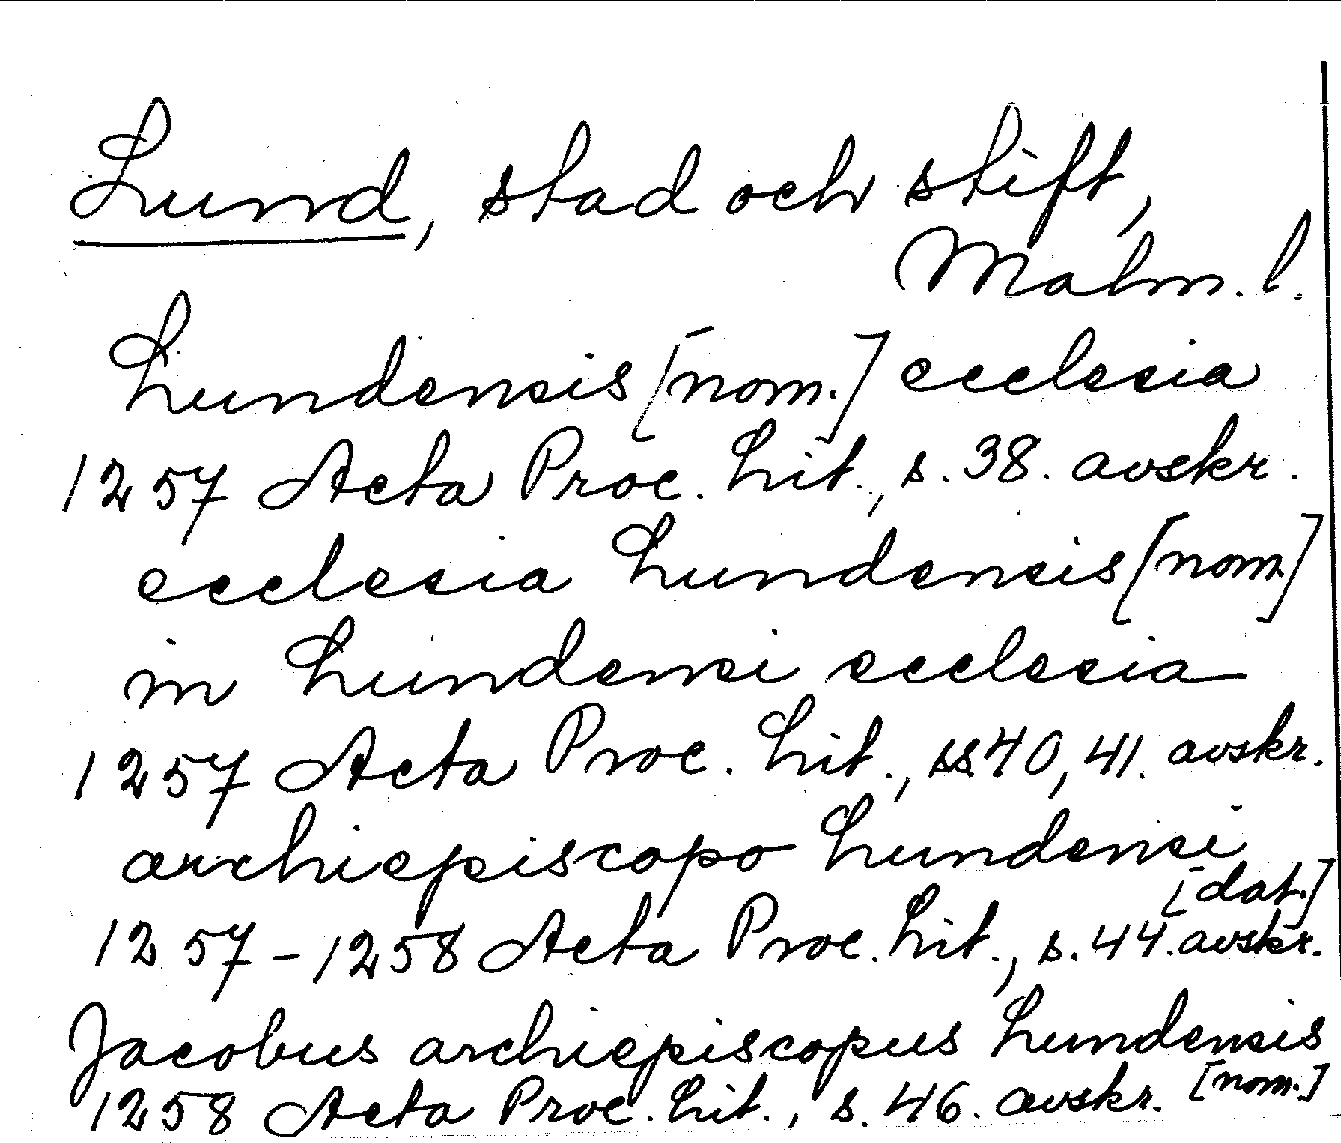 Lund, stad och stift,
Malm. l.
Lundensis [nom.] ecclesia
1257 Acta Proc. Lit., s. 38. avskr.
ecclesia Lundensis [nom.]
in Lundensi ecclesia
1257 Acta Proc. Lit., ss 40, 41. avskr.
archiepiscopo Lundensi
[dat.]
1257-1258 Acta Proc. Lit., s. 44. avskr.
Jacobus archiepiscopus Lundensis
1258 Acta Proc. Lit., s. 46. avskr. [nom.]